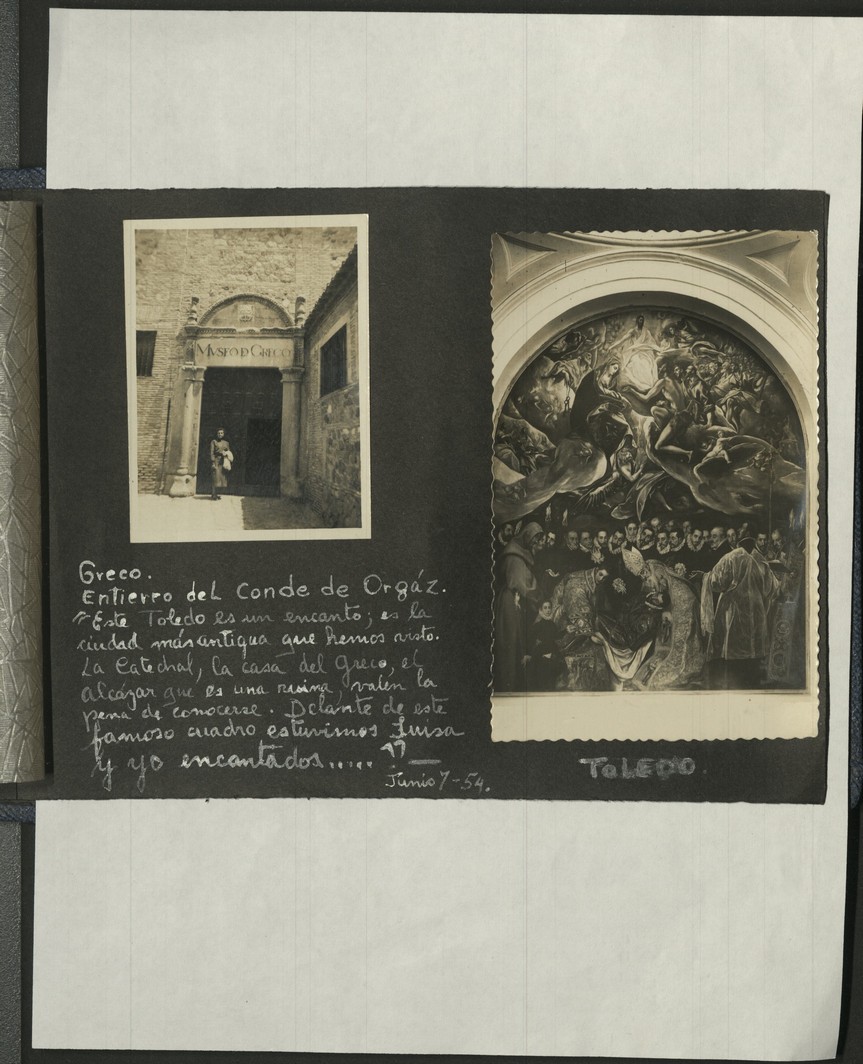 MVSEO D GRECO
Greco.
Entierro del Conde de Orgáz.
"Este Toledo es un encanto; es la
ciudad más antigua que hemos visto.
La Catedral, la casa del Greco, el
Alcázar que es una ruina, valen la
pena de conocerse. Delante de este
famoso cuadro estuvimos Luisa
y yo encantados....."—
Junio 7-54.
TOLEDO.